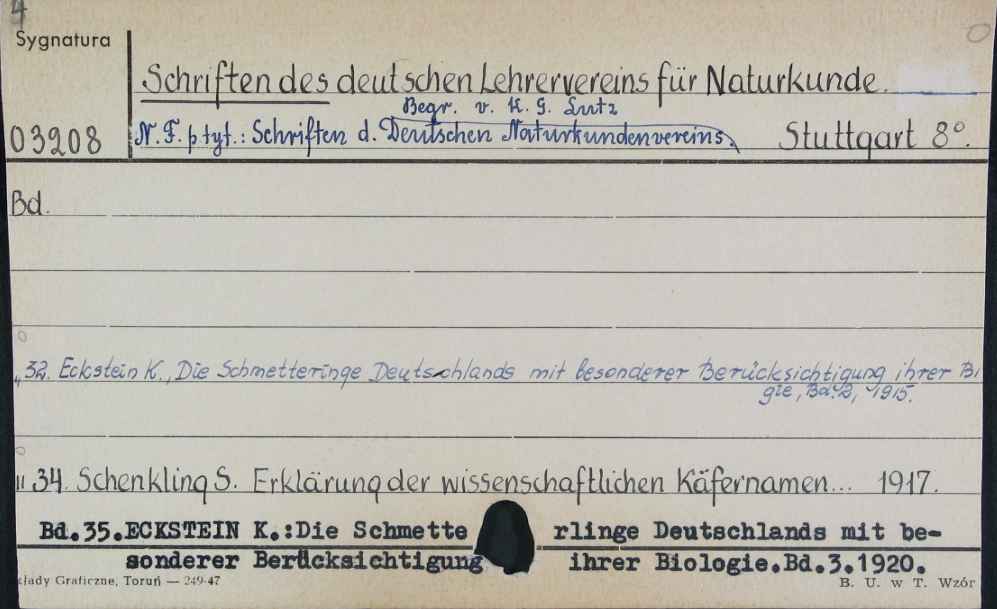 4
Sygnatura
Schriften des deutschen Lehrervereins für Naturkunde.
Begr. v. K. G. Lutz
03908 N. F. p tyt.: Schriften d. Deutschen Naturkundenvereins, Stuttgart 8°.
Bd.
„ 32. Eckstein K., Die Schmetteringe Deutschlands mit besonderer Berücksichtigung ihrer Bi
gie, Bd. 2, 1915.
" 34. Schenkling S. Erklärung der wissenschaftlichen Käfernamen... 1917.
Bd.35.ECKSTEIN K.:Die Schmette rlinge Deutschlands mit be-
sonderer Berücksichtigung ihrer Biologie.Bd.3.1920.
łady Graficzne, Toruń — 249-47 B. U. w T. Wzór